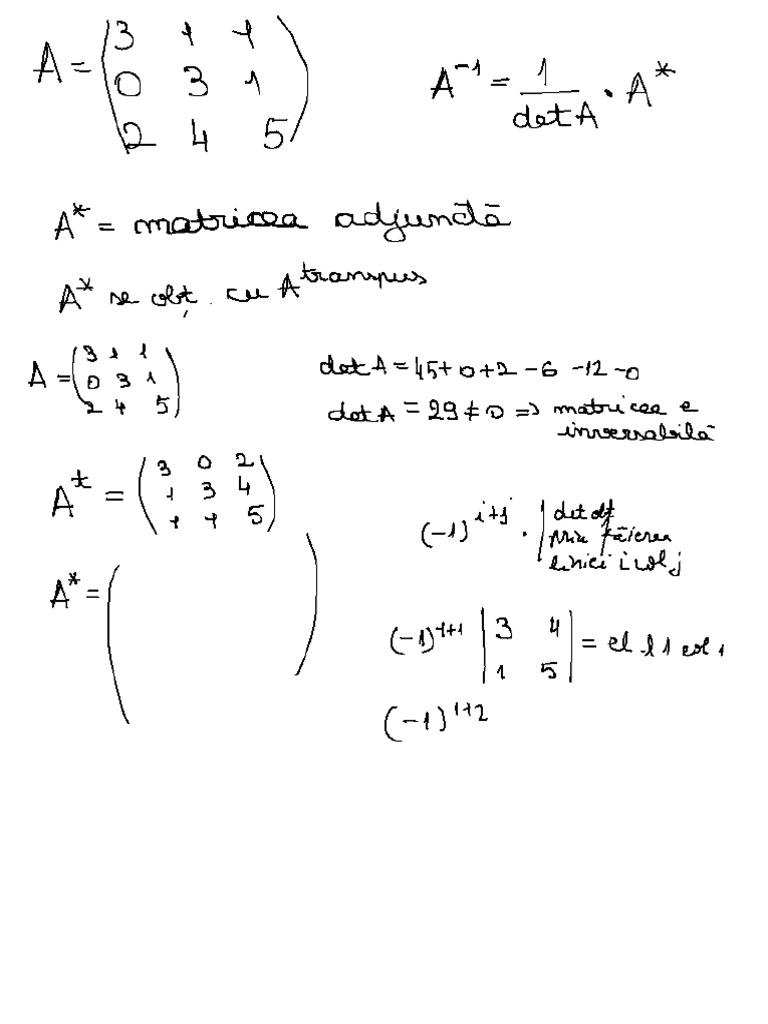 A = (3 1 1
0 3 1
2 4 5)
A⁻¹ = 1/det A · A*
A* = matricea adjunctă
A* se obț. cu A^transpus
A = (3 1 1
0 3 1
2 4 5)
det A = 45+0+2-6-12-0
det A = 29 ≠ 0 => matricea e
inversabilă
A^t = (3 0 2
1 3 4
1 1 5)
(-1)^i+j · |det
prin tăierea
liniei i col j
A* = ( )
(-1)^1+1 |3 4
1 5| = el l 1 col 1
(-1)^1+2